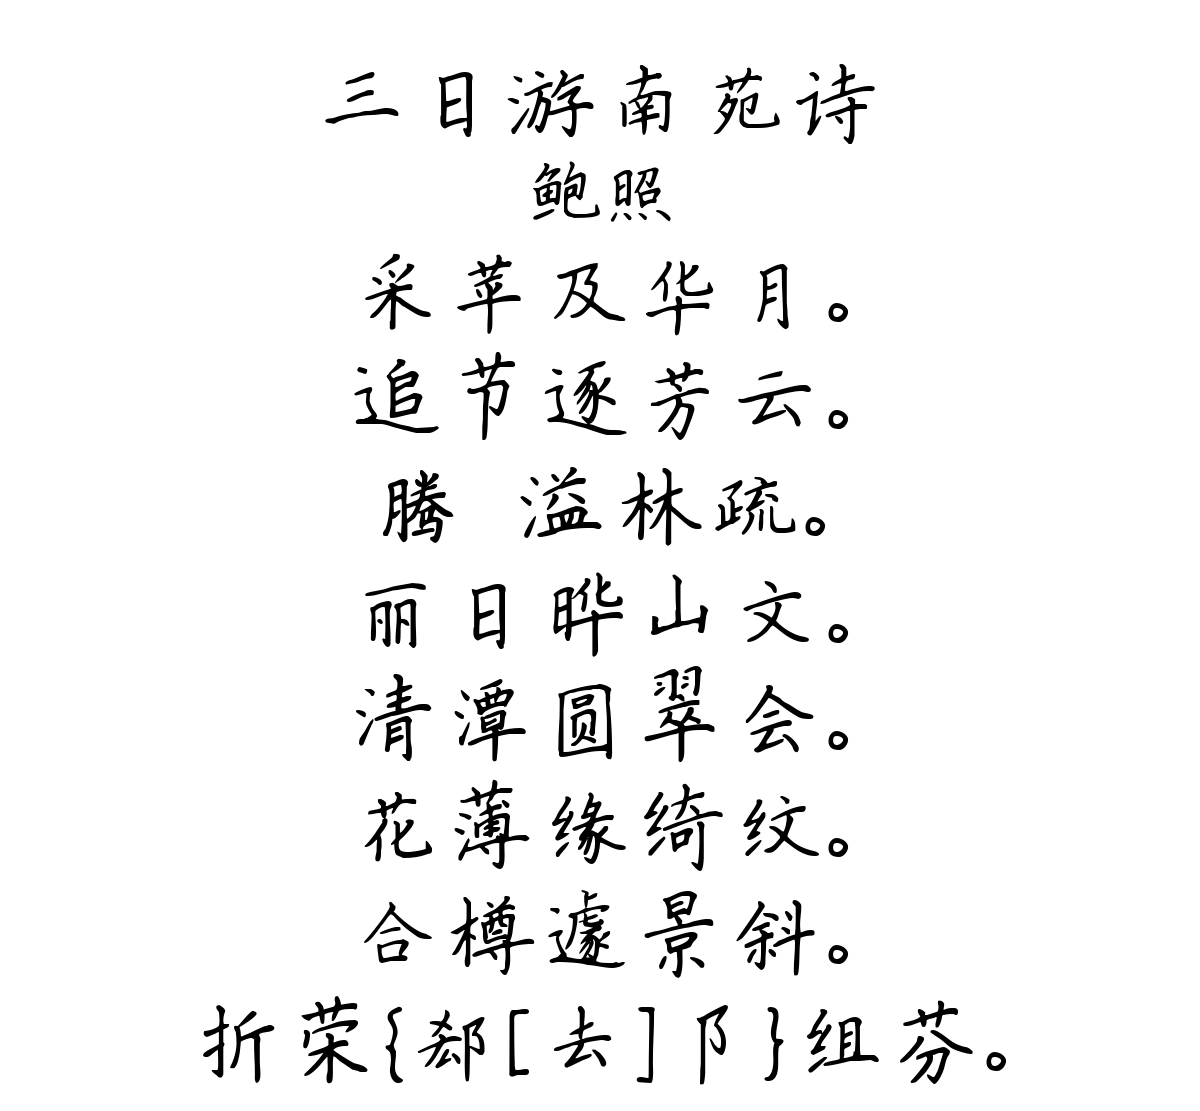 三日游南苑诗
鲍照
采苹及华月。
追节逐芳云。
腾 溢林疏。
丽日晔山文。
清潭圆翠会。
花薄缘绮纹。
合樽遽景斜。
折荣{郄[去]阝}组芬。